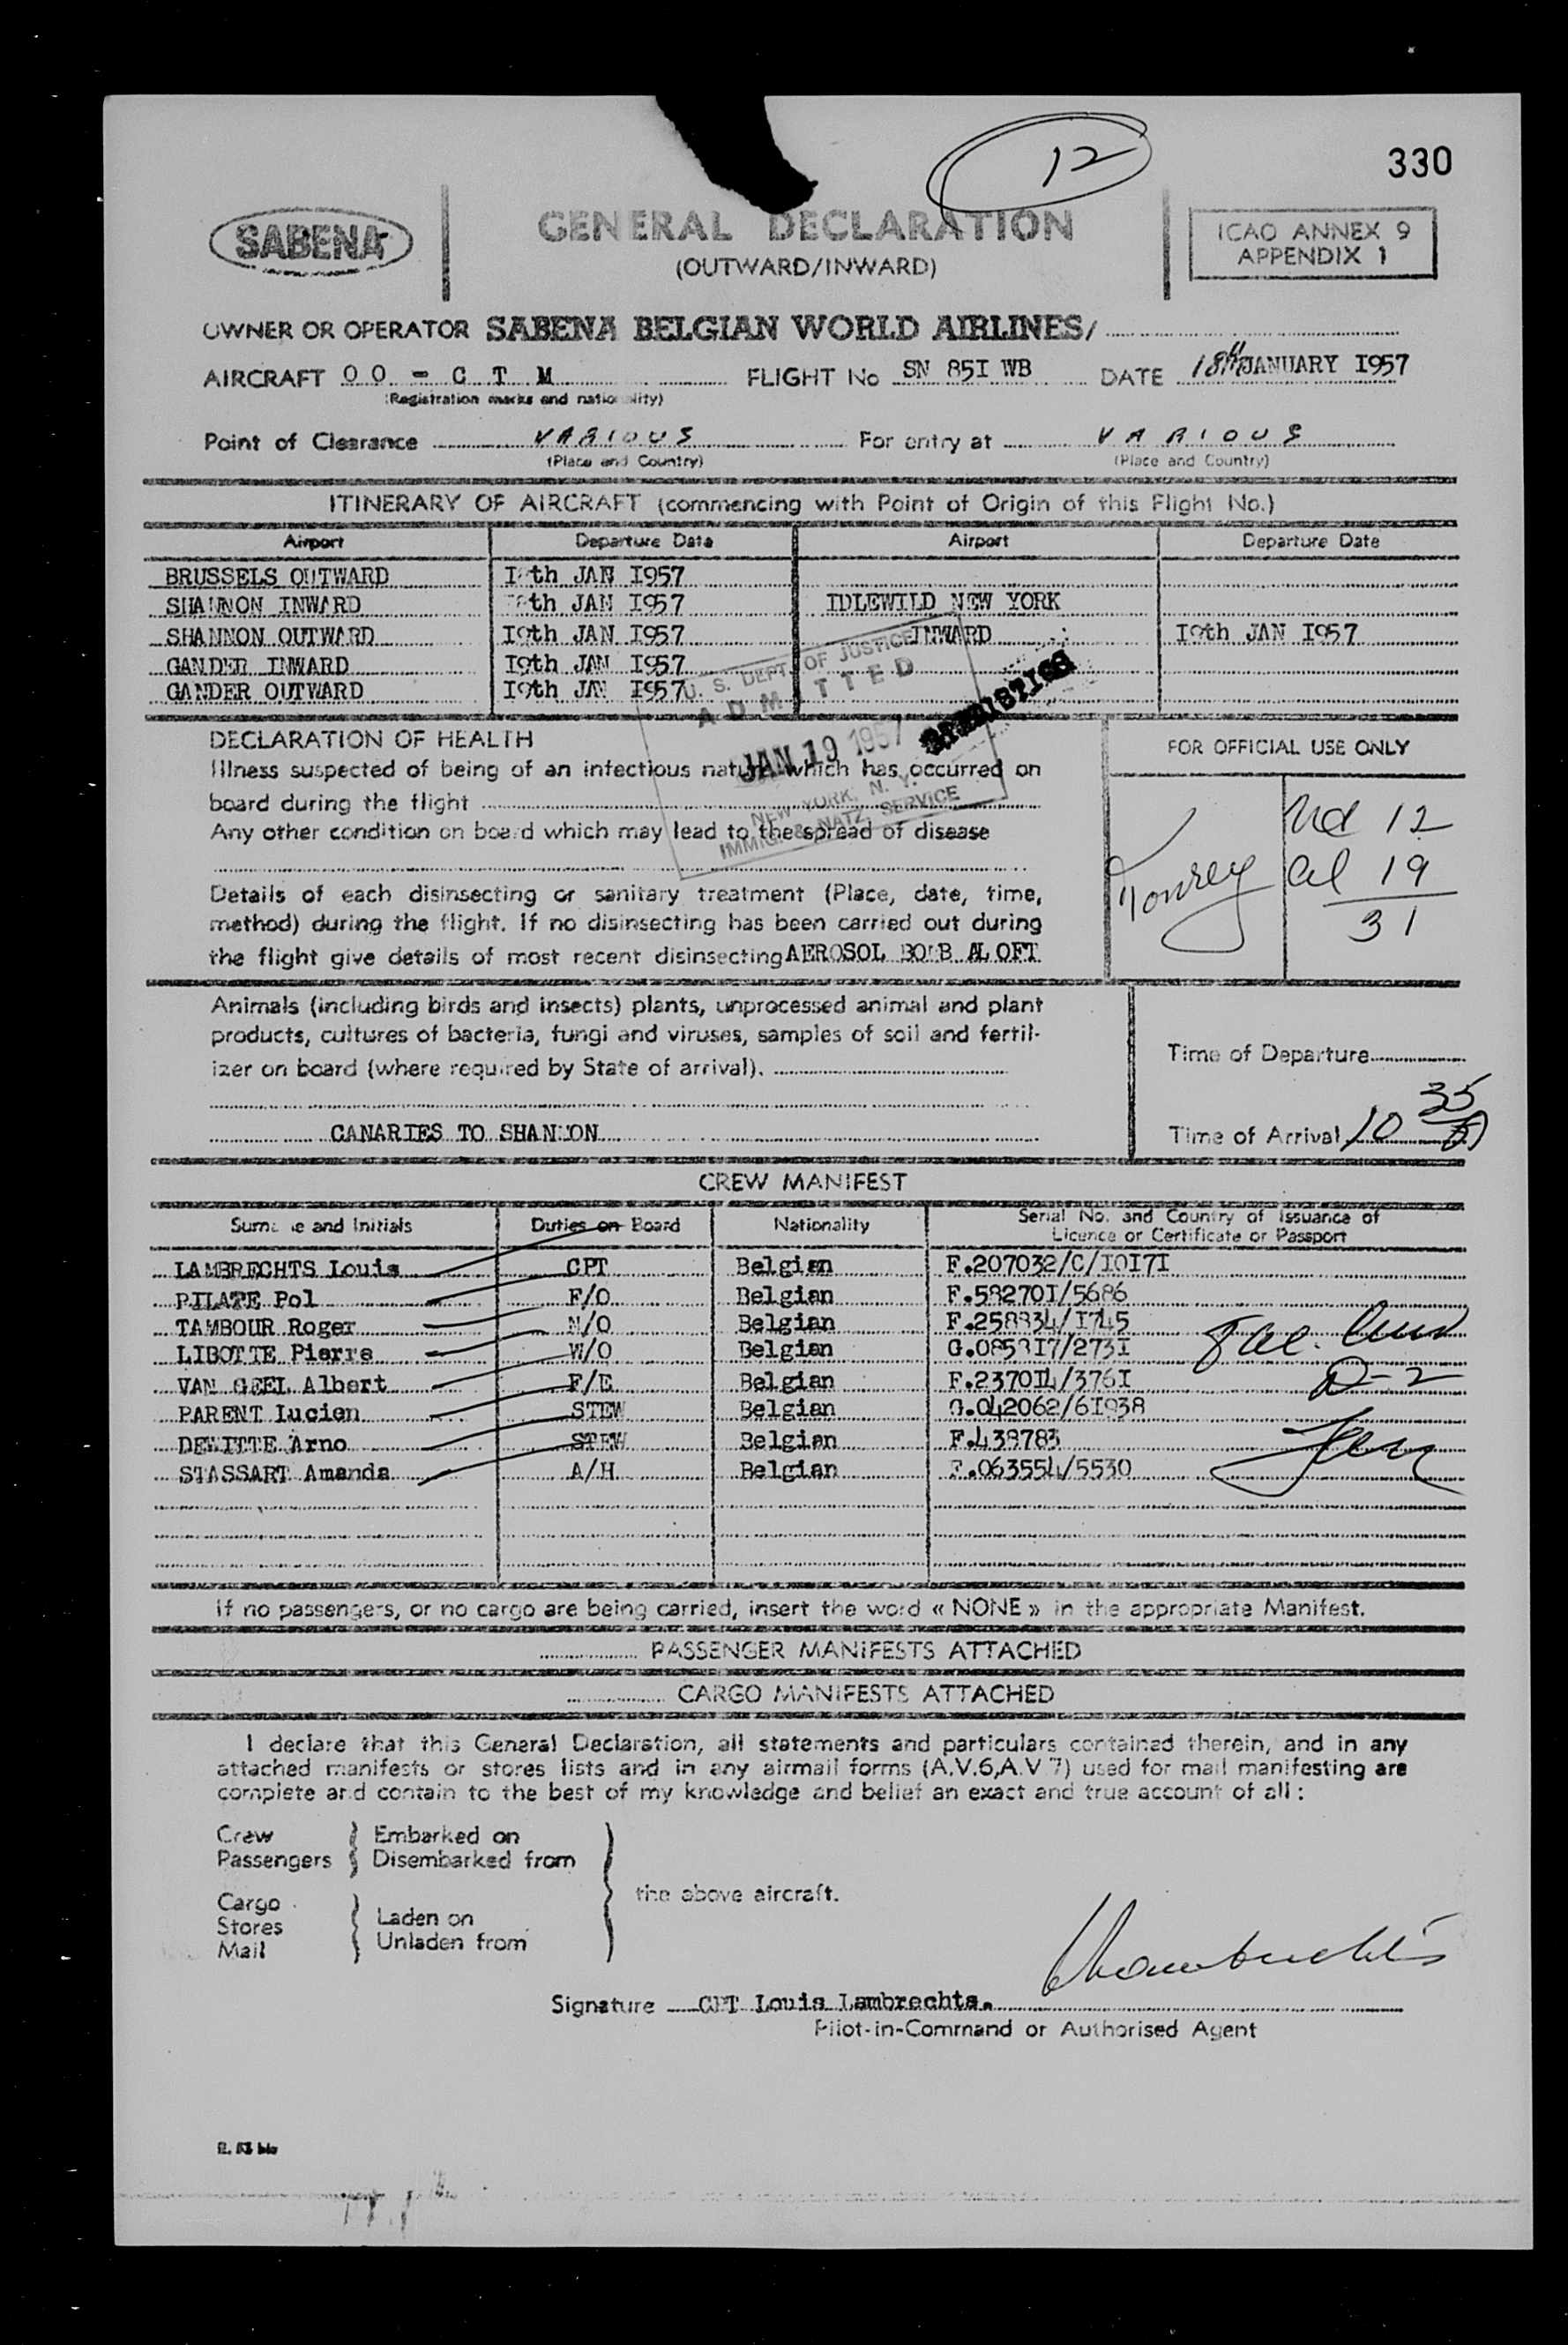 12
330
SABENA
GENERAL DECLARATION
(OUTWARD/INWARD)
ICAO ANNEX 9
APPENDIX 1
OWNER OR OPERATOR SABENA BELGIAN WORLD AIRLINES/
AIRCRAFT OO - C T M FLIGHT No SN 85I WB DATE 18th JANUARY I957
(Registration marks and nationality)
Point of Clearance VARIOUS For entry at VARIOUS
(Place and Country) (Place and Country)
ITINERARY OF AIRCRAFT (commencing with Point of Origin of this Flight No.)
Airport Departure Date Airport Departure Date
BRUSSELS OUTWARD th JAN I957
SHANNON INWARD th JAN I957 IDLEWILD NEW YORK
SHANNON OUTWARD I9th JAN I957 INWARD I9th JAN I957
GANDER INWARD I9th JAN I957
GANDER OUTWARD I9th JAN I957
U. S. DEPT. OF JUSTICE
ADMITTED
JAN 19 1957
NEW YORK, N. Y.
IMMIG. & NATZ. SERVICE
DECLARATION OF HEALTH
Illness suspected of being of an infectious nature which has occurred on
board during the flight
Any other condition on board which may lead to the spread of disease
Details of each disinsecting or sanitary treatment (Place, date, time,
method) during the flight. If no disinsecting has been carried out during
the flight give details of most recent disinsecting AEROSOL BOMB ALOFT
FOR OFFICIAL USE ONLY
12
al 19
31
Animals (including birds and insects) plants, unprocessed animal and plant
products, cultures of bacteria, fungi and viruses, samples of soil and fertil-
izer on board (where required by State of arrival).
CANARIES TO SHANNON
Time of Departure
Time of Arrival 10 35
CREW MANIFEST
Surname and Initials Duties on Board Nationality Serial No. and Country of Issuance of
Licence or Certificate or Passport
LAMBRECHTS Louis CPT Belgian F.207032/C/I0I7I
PILATE Pol F/O Belgian F.58270I/5686
TAMBOUR Roger N/O Belgian F.258834/I745
LIBOTTE Pierre W/O Belgian G.0858I7/273I
VAN GEEL Albert F/E Belgian F.2370I4/376I
PARENT Lucien STEW Belgian G.042062/6I938
DEWITTE Arno STEW Belgian F.438783
STASSART Amanda A/H Belgian F.063554/5530
D-2
If no passengers, or no cargo are being carried, insert the word « NONE » in the appropriate Manifest.
PASSENGER MANIFESTS ATTACHED
CARGO MANIFESTS ATTACHED
I declare that this General Declaration, all statements and particulars contained therein, and in any
attached manifests or stores lists and in any airmail forms (A.V.6,A.V.7) used for mail manifesting are
complete and contain to the best of my knowledge and belief an exact and true account of all :
Crew Embarked on
Passengers Disembarked from
the above aircraft.
Cargo
Stores Laden on
Mail Unladen from
Signature CPT Louis Lambrechts.
Pilot-in-Command or Authorised Agent